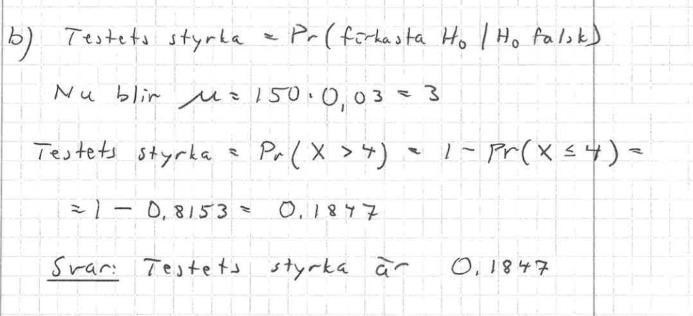 b) Testets styrka = Pr(förkasta H₀ | H₀ falsk)
Nu blir μ = 150·0,03 = 3
Testets styrka = Pr(X > 4) = 1 - Pr(X ≤ 4) =
= 1 - 0,8153 = 0,1847
Svar: Testets styrka är 0,1847